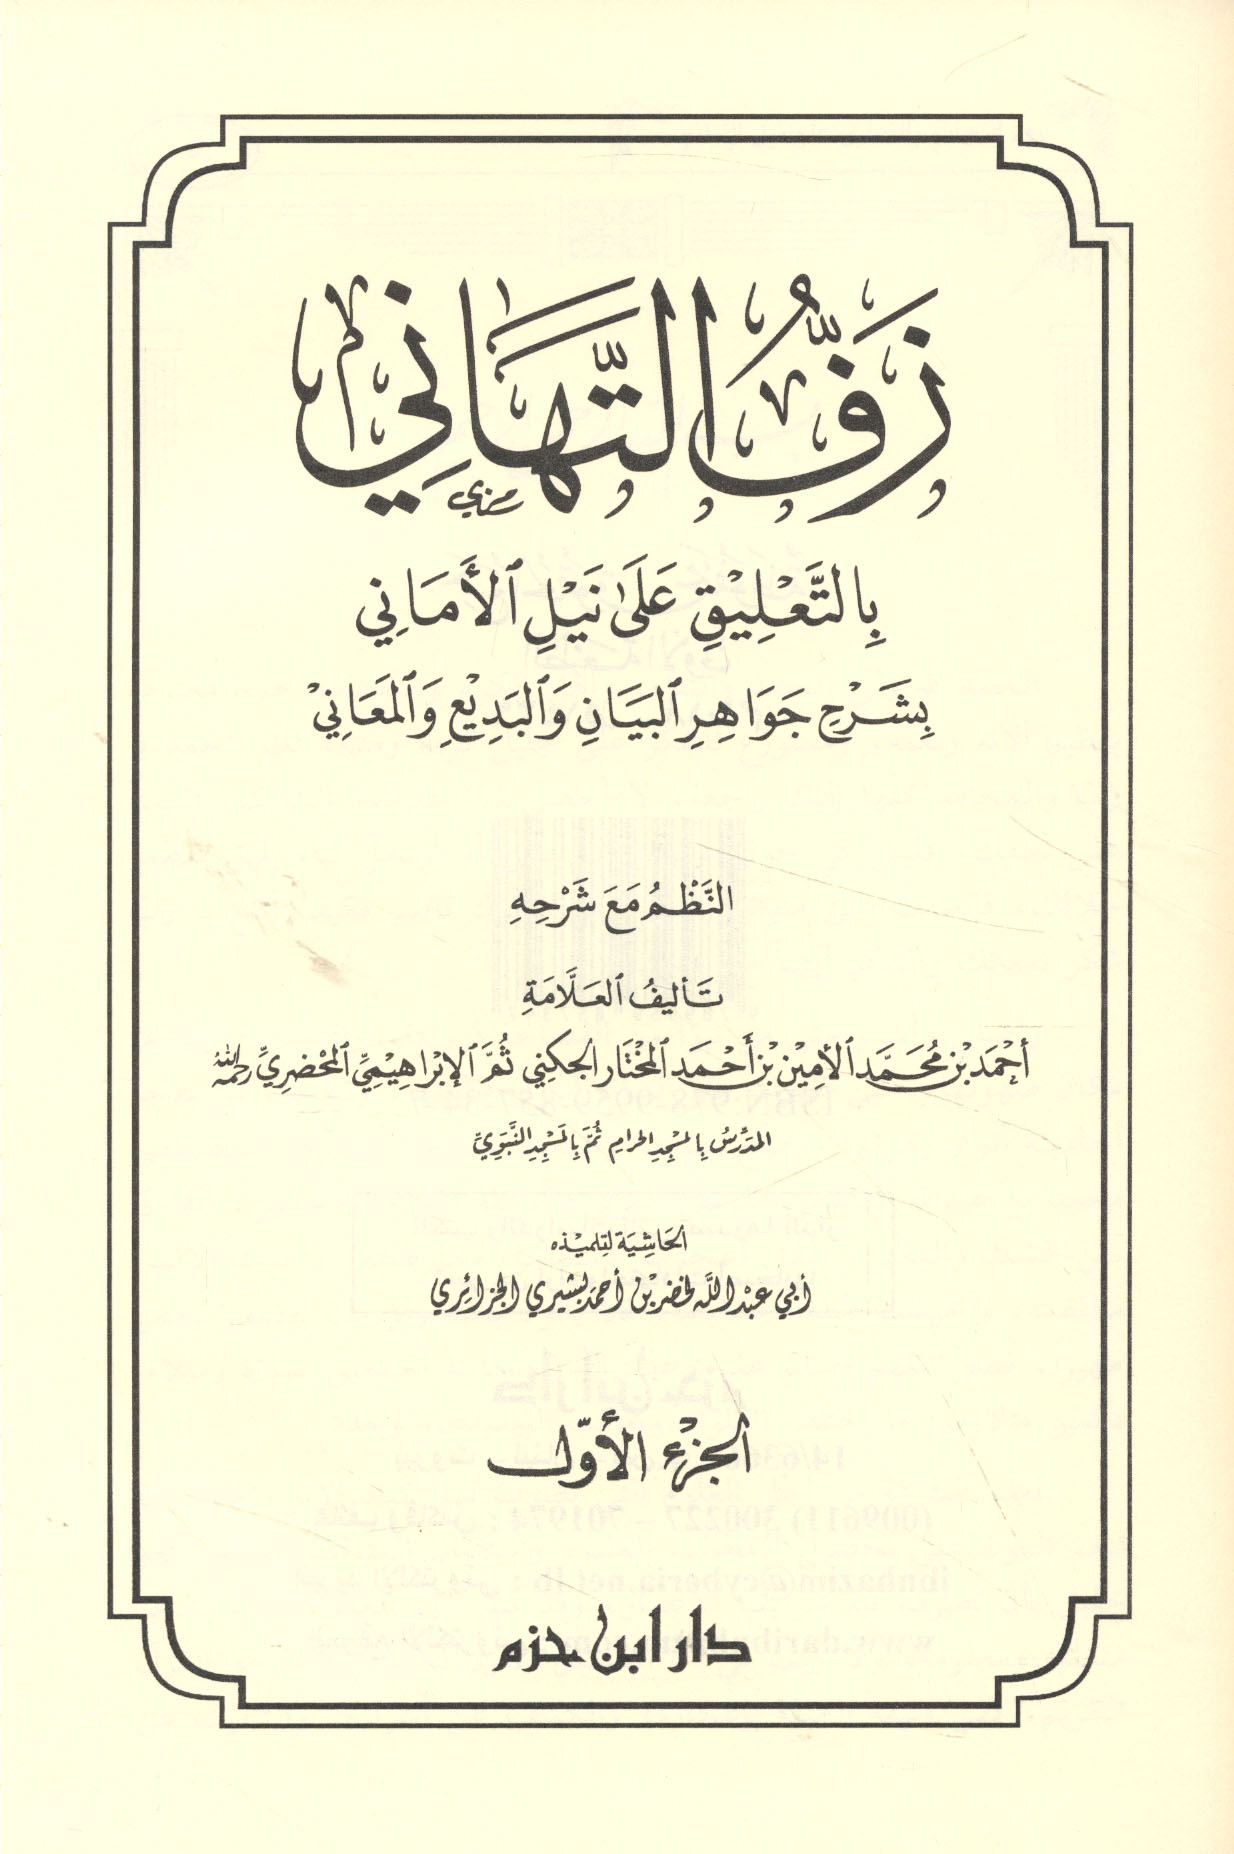 زَفُّ التَّهَانِي
بِالتَّعْلِيْقِ عَلَىٰ نَيْلِ ٱلأَمَانِي
بِشَرْحِ جَوَاهِرِ ٱلبَيَانِ وَٱلبَدِيْعِ وَٱلمَعَانِيْ
النَّظْمُ مَعَ شَرْحِهِ
تَأليفُ ٱلعَلَّامَةِ
أَحْمَد بْن مُحَمَّد ٱلأمِيْن بْن أَحْمَد ٱلمُخْتَار الجكني ثُمَّ ٱلإبْرَاهِيْمِيِّ ٱلمحْضَرِيِّ رحمه الله
المدَرِّسُ بِالمَسْجِدِ الحَرامِ ثُمَّ بِالمَسْجِدِ النَّبَوِيِّ
الحَاشِيَة لِتلميْذه
أبي عبد الله لخضر بْن أحمد لبشيري الجزائري
الجزءُ الأَوّل
دار ابن حزم